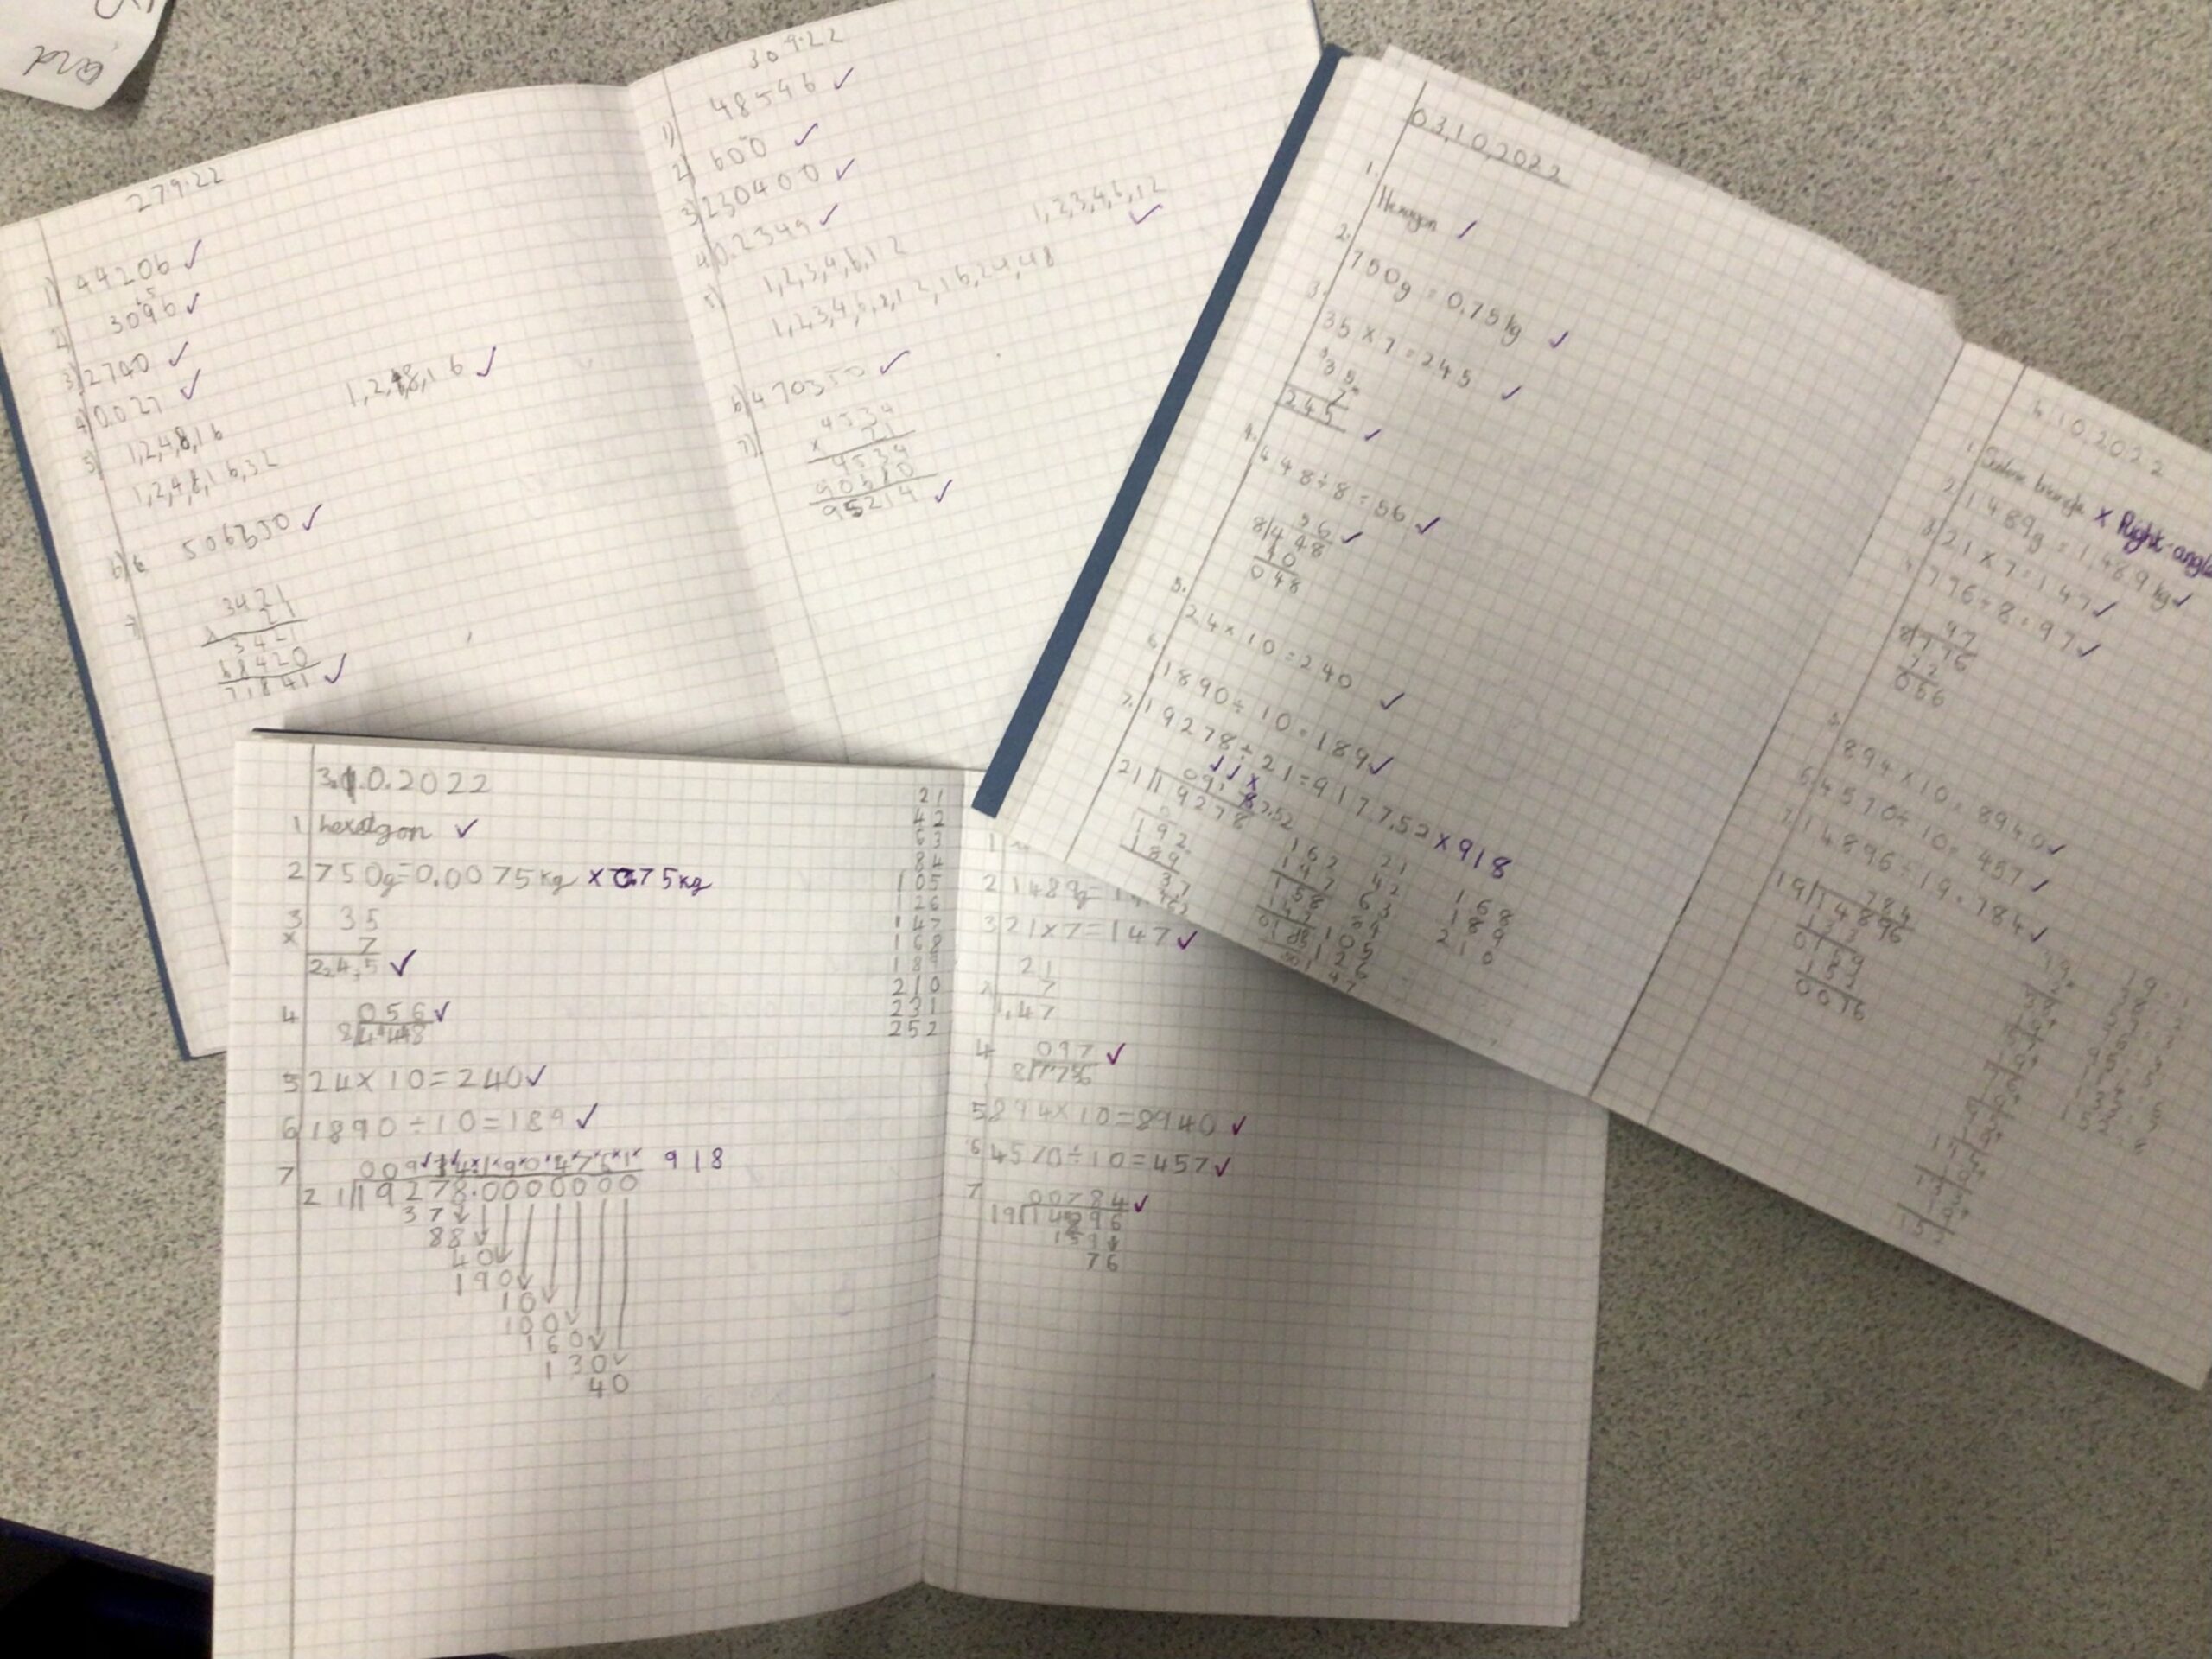 and
27 9.22
1) 44206 ✓
2) 3096 ✓
3) 2700 ✓
4) 0.027 ✓
5) 1,2,4,8,16
1,2,4,8,16 ✓
1,2,4,8,16,32
6) 506350 ✓
7) 3421
x 21
3421
68420
71841 ✓
30 9.22
1) 48546 ✓
2) 600 ✓
3) 230400 ✓
4) 0.2349 ✓
5) 1,2,3,4,6,12
1,2,3,4,6,12 ✓
1,2,3,4,6,8,12,16,24,48
6) 470350 ✓
7) 4534
x 21
4534
90680
95214 ✓
03,10,2022
1. Hexagon ✓
2. 750g = 0.75kg ✓
3. 35 x 7 = 245 ✓
35
7
245 ✓
4. 448÷8=56 ✓
56 ✓
8 448
40
048
5. 24x10=240 ✓
6. 1890÷10=189 ✓
7. 19278÷21=917.52 x 918
21 19278
192
189
37
162 21
147 42 168
158 63 189
147 84 210
105
126
147
4.10.2022
1. Scalene triangle x Right-angle
2. 1489g = 1.489kg ✓
3. 21x7=147 ✓
4. 776÷8=97 ✓
97
8 776
72
056
5. 894x10=8940 ✓
6. 4570÷10=457 ✓
7. 14896÷19=784 ✓
784
19 14896
133
0159
152
0076
3.10.2022
1 hexagon ✓
2 750g=0.0075kg x 0.75kg
3 35
x 7
245 ✓
4 056 ✓
8 448
5 24x10=240 ✓
6 1890÷10=189 ✓
7 918
21 19278.0000000
37
88
40
190
10
100
160
130
40
21
42
63
84
105
126
147
168
189
210
231
252
1
2 1489g=1.
3 21x7=147 ✓
21
7
147
4 097 ✓
8 776
5 894x10=8940 ✓
6 4570÷10=457 ✓
7 00784 ✓
19 14896
159
76